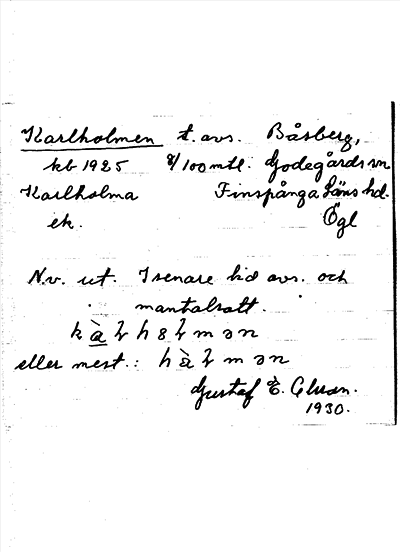 Karlholmen t. avs. Båsberg,
kb 1925 8/100 mtl. Godegårds sn
Karlholma Finspånga läns hd.
ek. Ögl
N.v. ut. I senare tid avs. och
mantalsatt.
eller mest.:
Gustaf E.
1930.